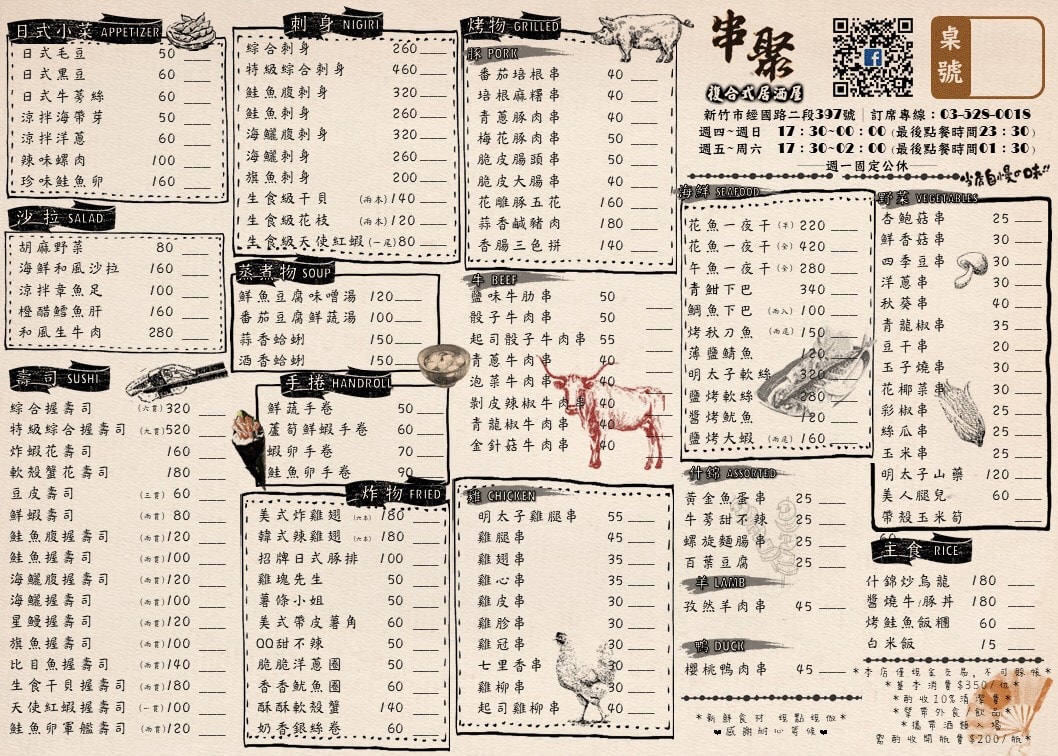 日式小菜 APPETIZER
日式毛豆 50
日式黑豆 60
日式牛蒡絲 60
涼拌海帶芽 50
涼拌洋蔥 60
辣味螺肉 100
珍味鮭魚卵 160
沙拉 SALAD
胡麻野菜 80
海鮮和風沙拉 160
涼拌章魚足 100
橙醋鱈魚肝 160
和風生牛肉 280
壽司 SUSHI
綜合握壽司 (六貫) 320
特級綜合握壽司 (九貫) 520
炸蝦花壽司 160
軟殼蟹花壽司 180
豆皮壽司 (三貫) 60
鮮蝦壽司 (兩貫) 80
鮭魚腹握壽司 (兩貫) 120
鮭魚握壽司 (兩貫) 100
海鱺腹握壽司 (兩貫) 120
海鱺握壽司 (兩貫) 100
星鰻握壽司 (兩貫) 120
旗魚握壽司 (兩貫) 100
比目魚握壽司 (兩貫) 140
生食干貝握壽司 (兩貫) 180
天使紅蝦握壽司 (一貫) 100
鮭魚卵軍艦壽司 (兩貫) 120
刺身 NIGIRI
綜合刺身 260
特級綜合刺身 460
鮭魚腹刺身 320
鮭魚刺身 260
海鱺腹刺身 320
海鱺刺身 260
旗魚刺身 200
生食級干貝 (兩本) 140
生食級花枝 (兩本) 120
生食級天使紅蝦 (一尾) 80
蒸煮物 SOUP
鮮魚豆腐味噌湯 120
番茄豆腐鮮蔬湯 100
蒜香蛤蜊 150
酒香蛤蜊 150
手捲 HANDROLL
鮮蔬手卷 50
蘆筍鮮蝦手卷 60
蝦卵手卷 70
鮭魚卵手卷 90
炸物 FRIED
美式炸雞翅 (六本) 180
韓式辣雞翅 (六本) 180
招牌日式豚排 100
雞塊先生 50
薯條小姐 50
美式帶皮薯角 60
QQ甜不辣 50
脆脆洋蔥圈 50
香香魷魚圈 60
酥酥軟殼蟹 140
奶香銀絲卷 60
烤物 GRILLED
豚 PORK
番茄培根串 40
培根麻糬串 40
青蔥豚肉串 40
梅花豚肉串 50
脆皮腸頭串 50
脆皮大腸串 40
花雕豚五花 160
蒜香鹹豬肉 180
香腸三色拼 140
牛 BEEF
鹽味牛肋串 50
骰子牛肉串 50
起司骰子牛肉串 55
青蔥牛肉串 40
泡菜牛肉串 40
剝皮辣椒牛肉串 40
青龍椒牛肉串 40
金針菇牛肉串 40
雞 CHICKEN
明太子雞腿串 55
雞腿串 45
雞翅串 35
雞心串 35
雞皮串 30
雞胗串 30
雞冠串 30
七里香串 30
雞柳串 30
起司雞柳串 40
串聚
複合式居酒屋
桌號
新竹市經國路二段397號｜訂席專線：03-528-0018
週四~週日 17:30~00:00(最後點餐時間23:30)
週五~周六 17:30~02:00(最後點餐時間01:30)
週一固定公休
当店自慢の味!!
海鮮 SEAFOOD
花魚一夜干 (半) 220
花魚一夜干 (全) 420
午魚一夜干 (全) 280
青魽下巴 340
鯛魚下巴 (兩入) 100
烤秋刀魚 (兩尾) 150
薄鹽鯖魚 120
明太子軟絲 320
鹽烤軟絲 280
醬烤魷魚 120
鹽烤大蝦 (兩尾) 160
什錦 ASSORTED
黃金魚蛋串 25
牛蒡甜不辣 25
螺旋麵腸串 25
百葉豆腐 25
羊 LAMB
孜然羊肉串 45
鴨 DUCK
櫻桃鴨肉串 45
*新鮮食材 現點現做*
感謝耐心等候
野菜 VEGETABLES
杏鮑菇串 25
鮮香菇串 30
四季豆串 30
洋蔥串 30
秋葵串 40
青龍椒串 35
豆干串 20
玉子燒串 30
花椰菜串 30
彩椒串 25
絲瓜串 25
玉米串 25
明太子山藥 120
美人腿兒 60
帶殼玉米筍
60
主食 RICE
什錦炒烏龍 180
醬燒牛/豚丼 180
烤鮭魚飯糰 60
白米飯 15
*本店僅現金交易,不可賒帳*
*基本消費$350/位*
*酌收10%清潔費*
*禁帶外食飲品*
*攜帶酒類入場
需酌收開瓶費$200/瓶*